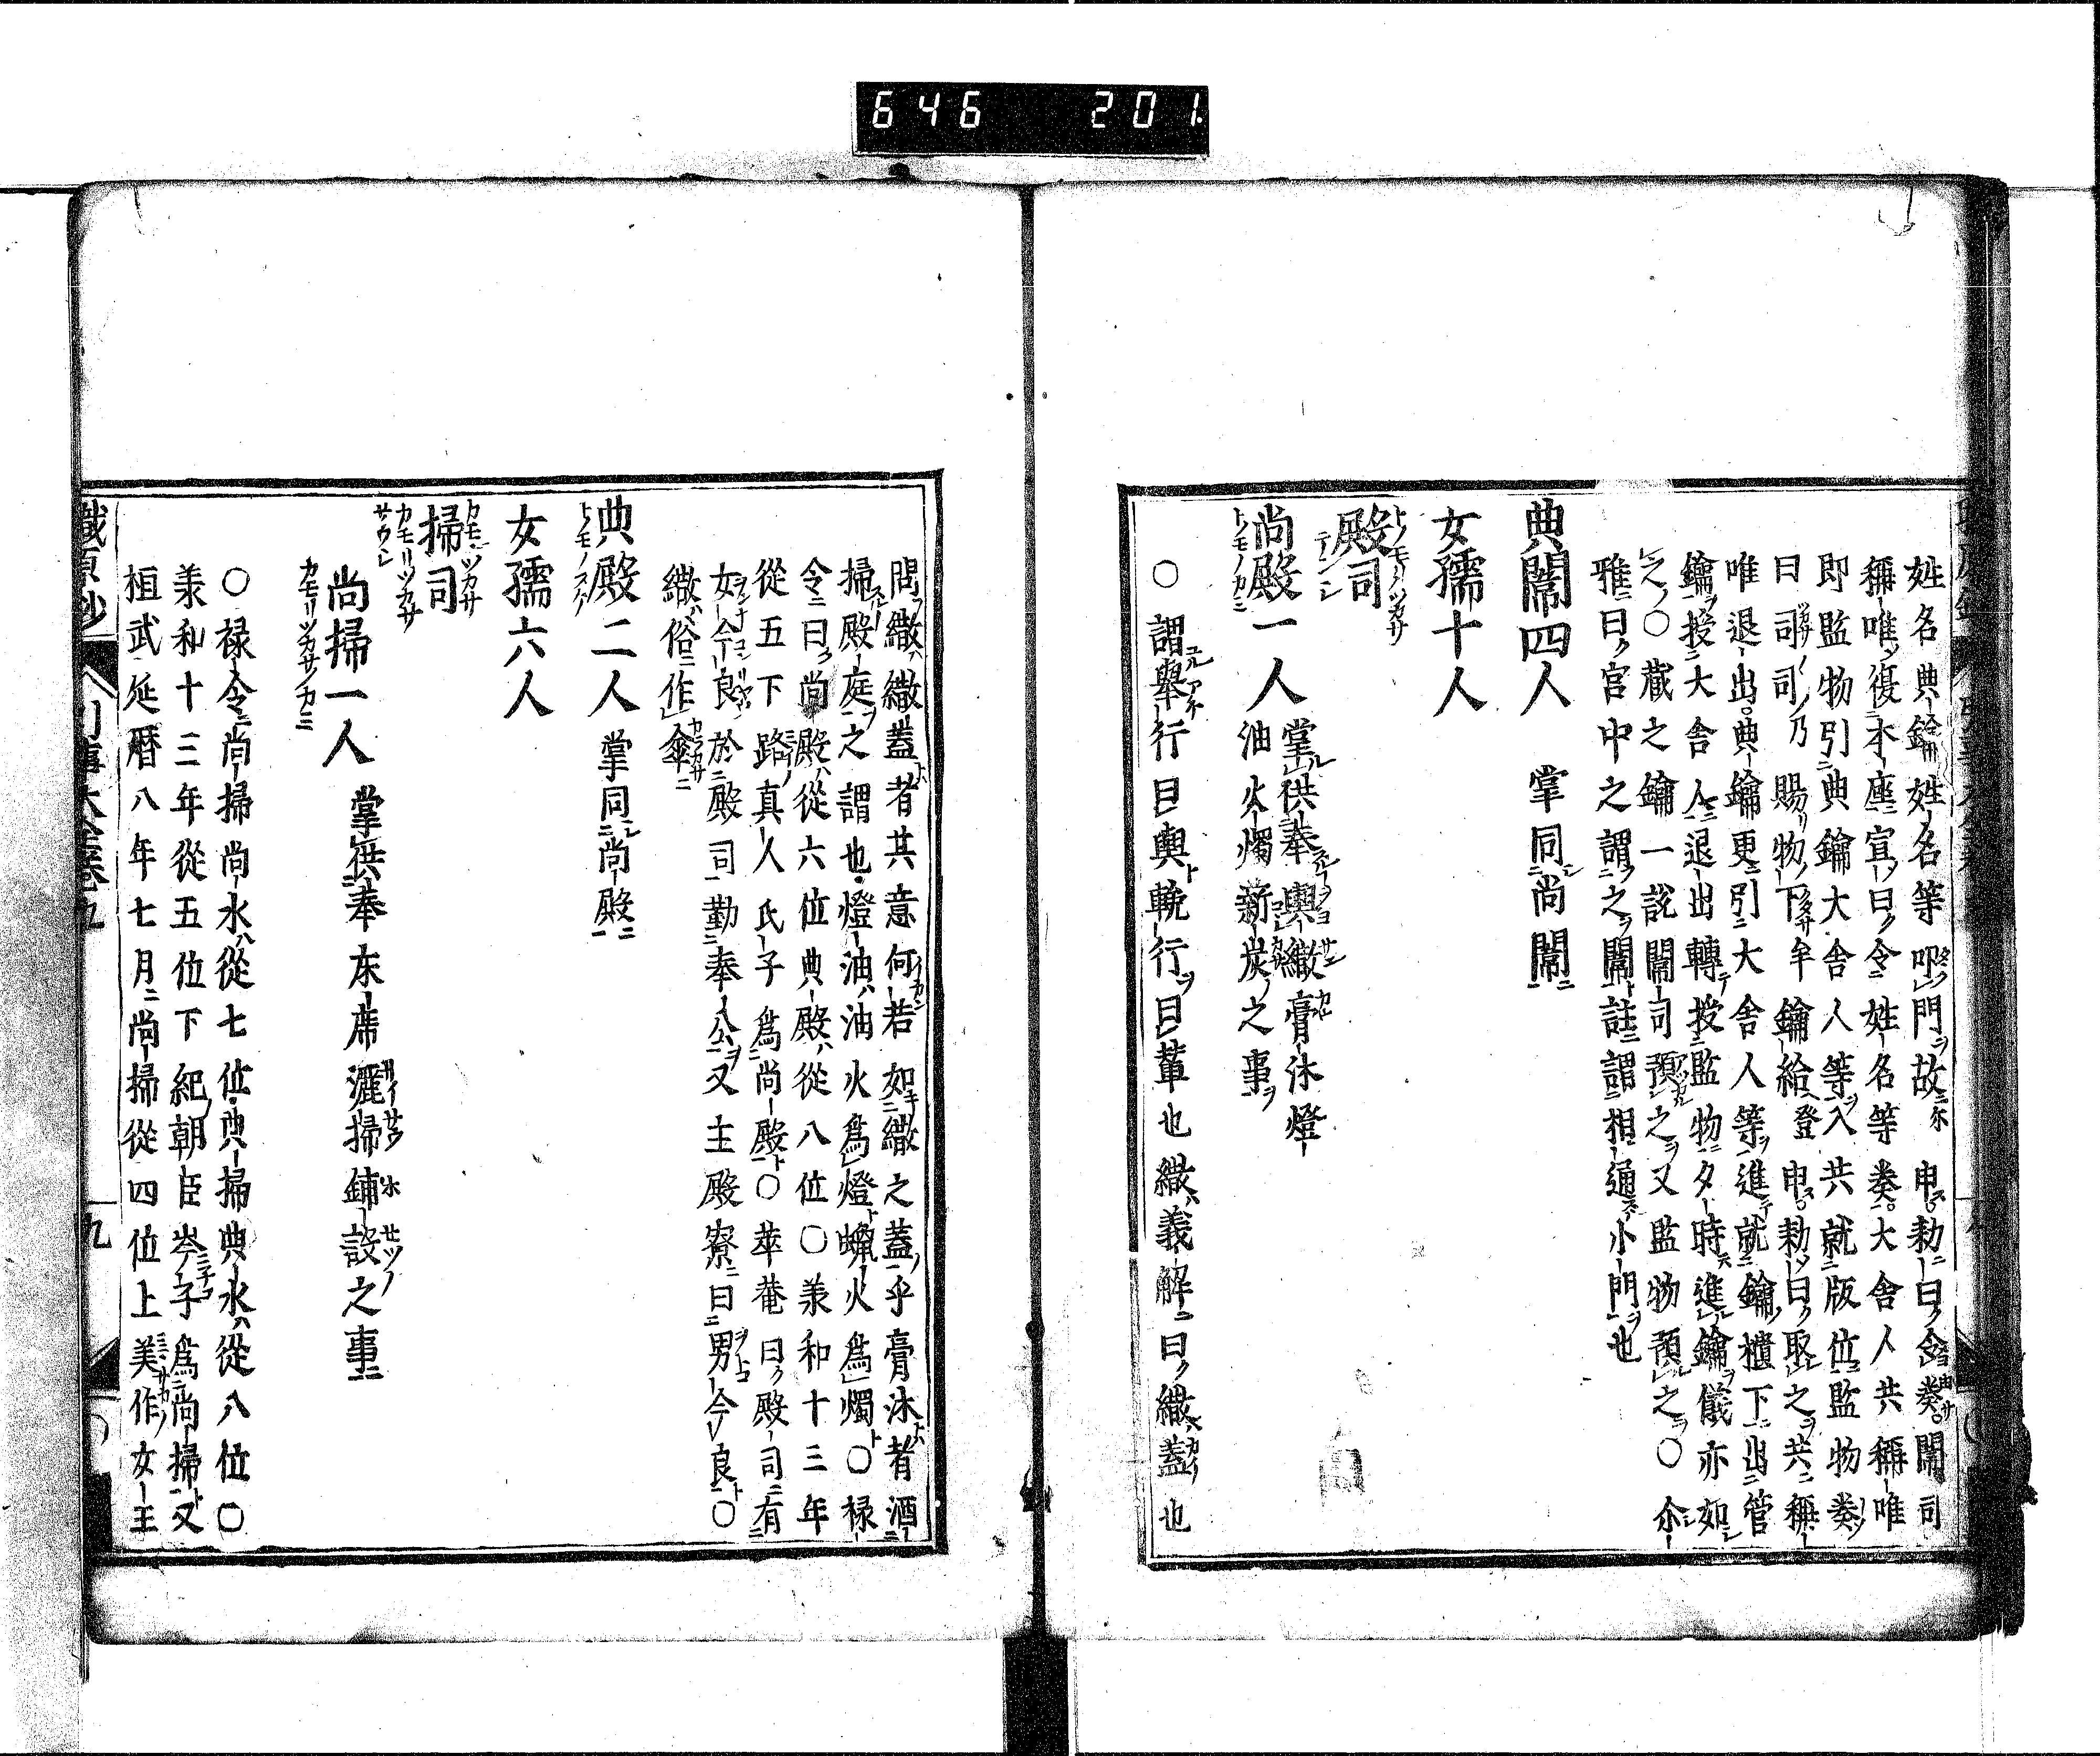 646 201
姓名典鑰姓名等叩門故尓申勅曰令奏闈司
稱唯復本座宣曰令姓名等奏大舎人共稱唯
即監物引典鑰大舎人等入共就版位監物奏
曰司司乃賜物下牟鑰給登申勅曰取之共稱
唯退出典鑰更引大舎人等進就鑰櫃下出管
鑰授大舎人退出轉授監物夕時進鑰儀亦如
之〇蔵之鑰一説闈司預之又監物預之〇尒
雅曰官中之謂之闈註謂相通小門也
典闈四人 掌同尚闈
女孺十人
殿司
トノモリノツカサ
テンシ
尚殿一人 掌供奉輿繖膏沐燈
油火燭薪炭之事
トノモノカミ
〇謂擧行曰輿輓行曰輦也繖義解曰繖蓋也
問繖繖蓋者其意何若如繖之蓋乎膏沐者酒
掃殿庭之謂也燈油油火為燈蠟火為燭〇禄
令曰尚殿從六位典殿從八位〇兼和十三年
從五下路真人氏子為尚殿〇華菴曰殿司有
女今良於殿司勤奉公又主殿寮曰男今良〇
繖俗作傘
典殿二人 掌同尚殿
トノモノスケ
女孺六人
掃司
カモンツカサ
カモリツカサ
サウシ
尚掃一人 掌供奉床席灑掃鋪設之事
カモリツカサノカミ
〇禄令尚掃尚水從七位典掃典水從八位〇
兼和十三年從五位下紀朝臣岑子為尚掃又
桓武延暦八年七月尚掃從四位上美作女王
職原抄 引事大全巻九 九